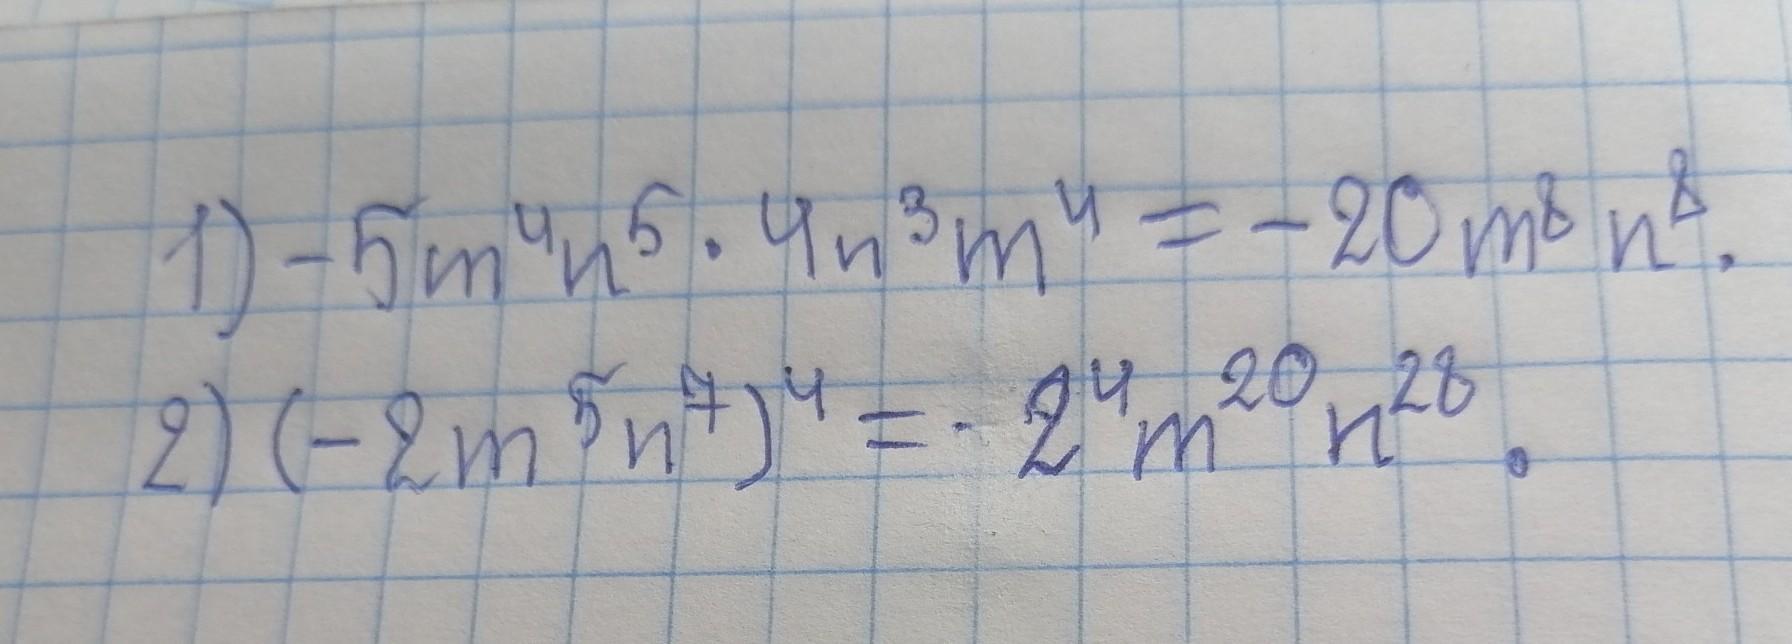 1) -5m⁴n⁵ · 4n³m⁴ = -20m⁸n⁸.
2) (-2m⁵n⁷)⁴ = - 2⁴m²⁰n²⁸.